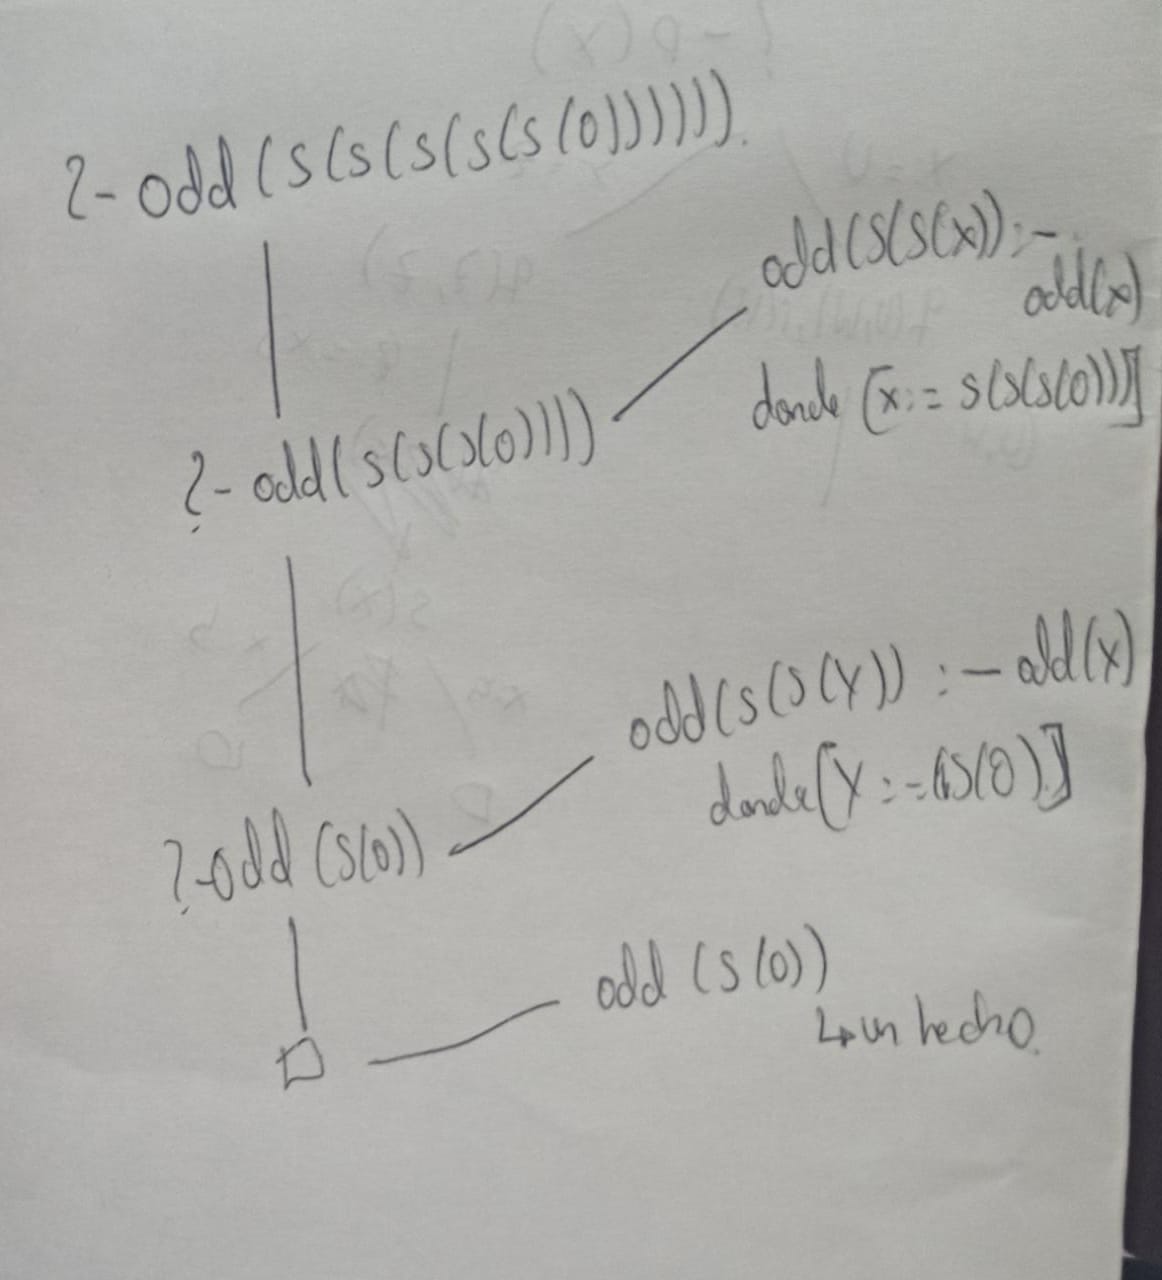 ?- odd (s(s(s(s(s(0)))))).
odd(s(s(x)):-
odd(x)
donde [x:= s(s(s(0)))]
?- odd(s(s(s(0))))
odd(s(s(y)) :- odd(x)
donde[y:=s(0)]
?-odd (s(0))
odd (s(0))
↳ un hecho.